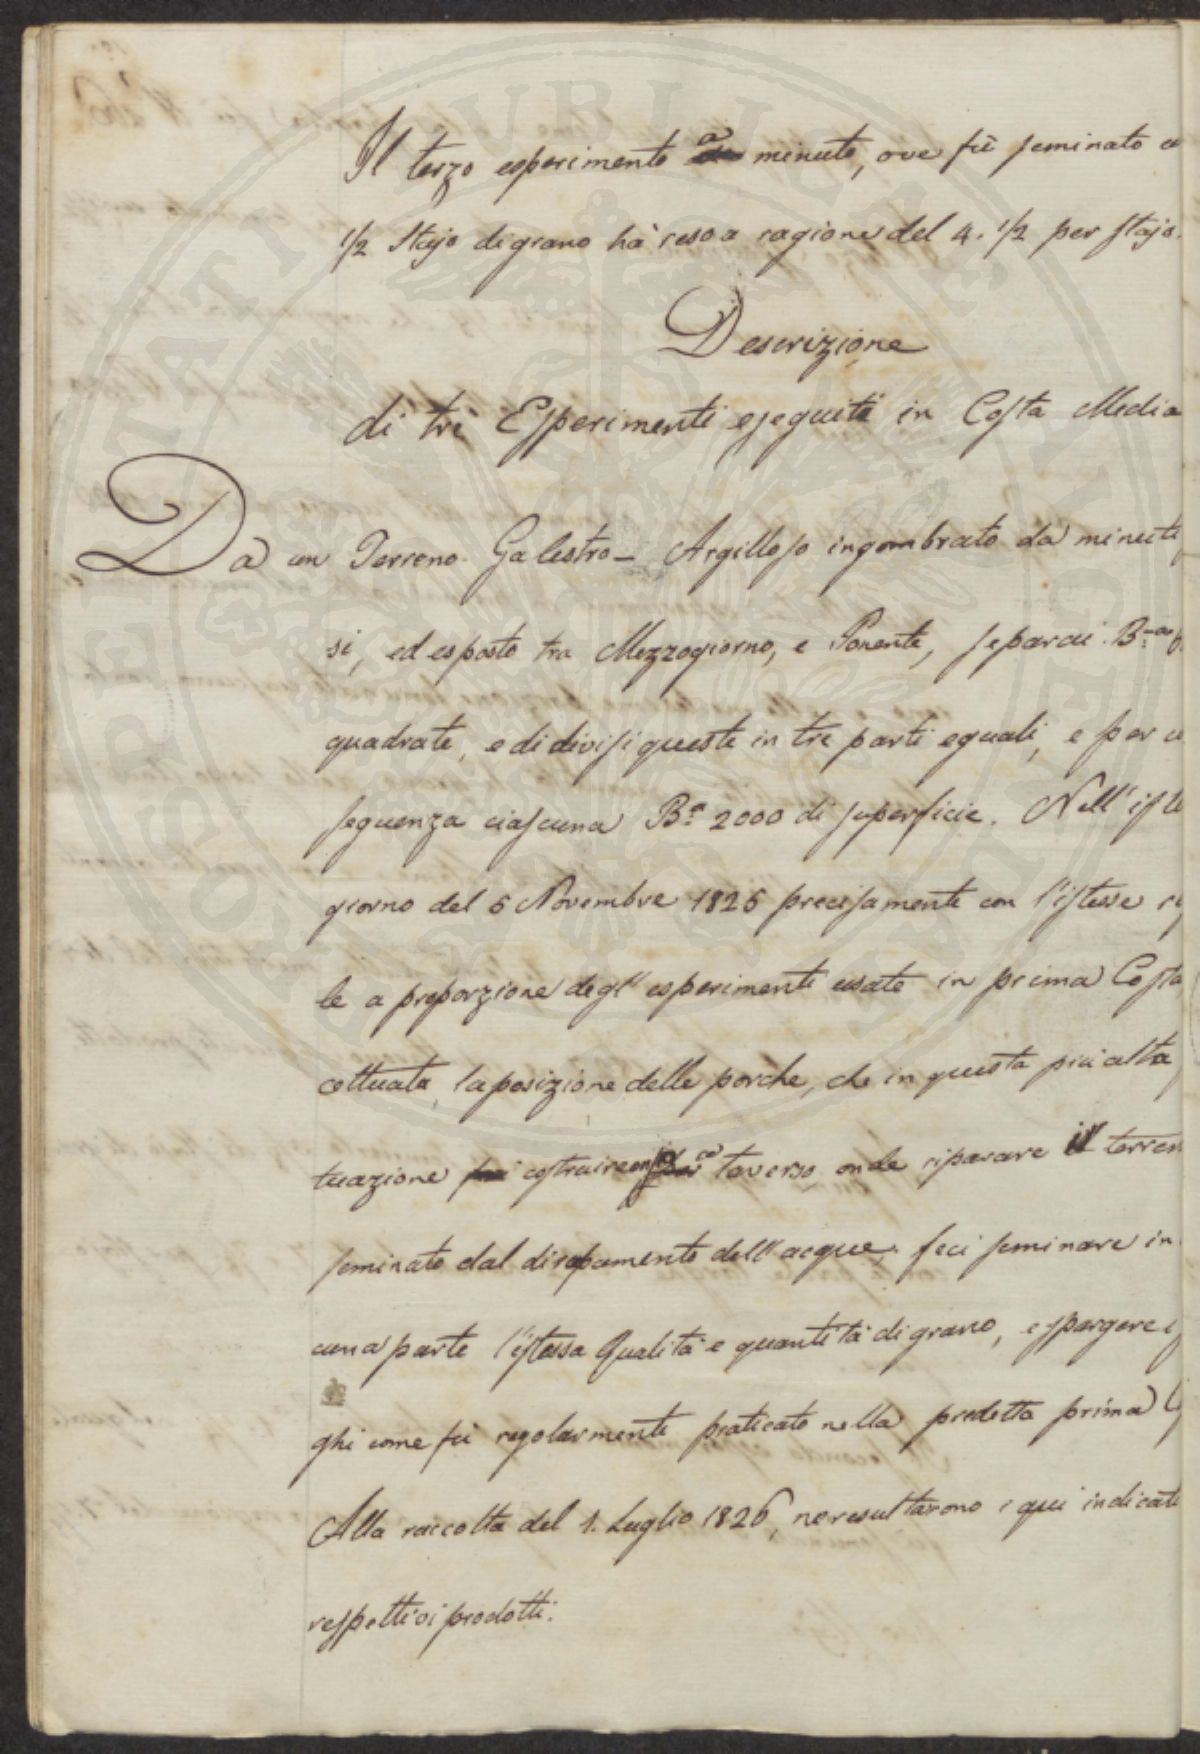 Il terzo esperimento a minuto, ove fù seminato
1/2 Stajo di grano hà reso a ragione del 4. 1/2 per stajo.
Descrizione
di trè Esperimenti eseguiti in Costa Media
Da un Terreno Galestro - Argilloso ingombrato da minuti
si, ed esposto tra Mezzogiorno, e Ponente, separai B.a
quadrate, e di divisi queste in tre parti eguali, e per
seguenza ciascuna B.a 2000 di superficie. Nell' iste
giorno del 6 Novembre 1826 precisamente con l'istesse
le a proporzione degl' esperimenti usate in prima Costa
cettuata la posizione delle porche, che in questa più alta
tuazione costruire traverso onde riparare il terren
seminato dal dirupamento dell' acque, feci seminare in
cuna parte l'istessa Qualità e quantità di grano, e spargere
ghi come fù regolarmente praticato nella predetta prima
Alla raccolta del 1. Luglio 1826, ne resultarono i qui indicati
respettivi prodotti.